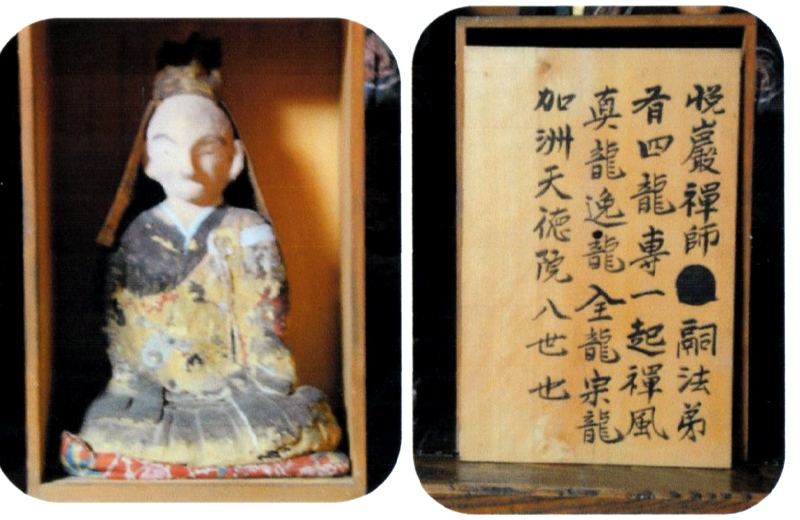 悦巖禪師●嗣法弟
有四龍專一起禪風
真龍逸龍全龍宗龍
加洲天徳院八世也